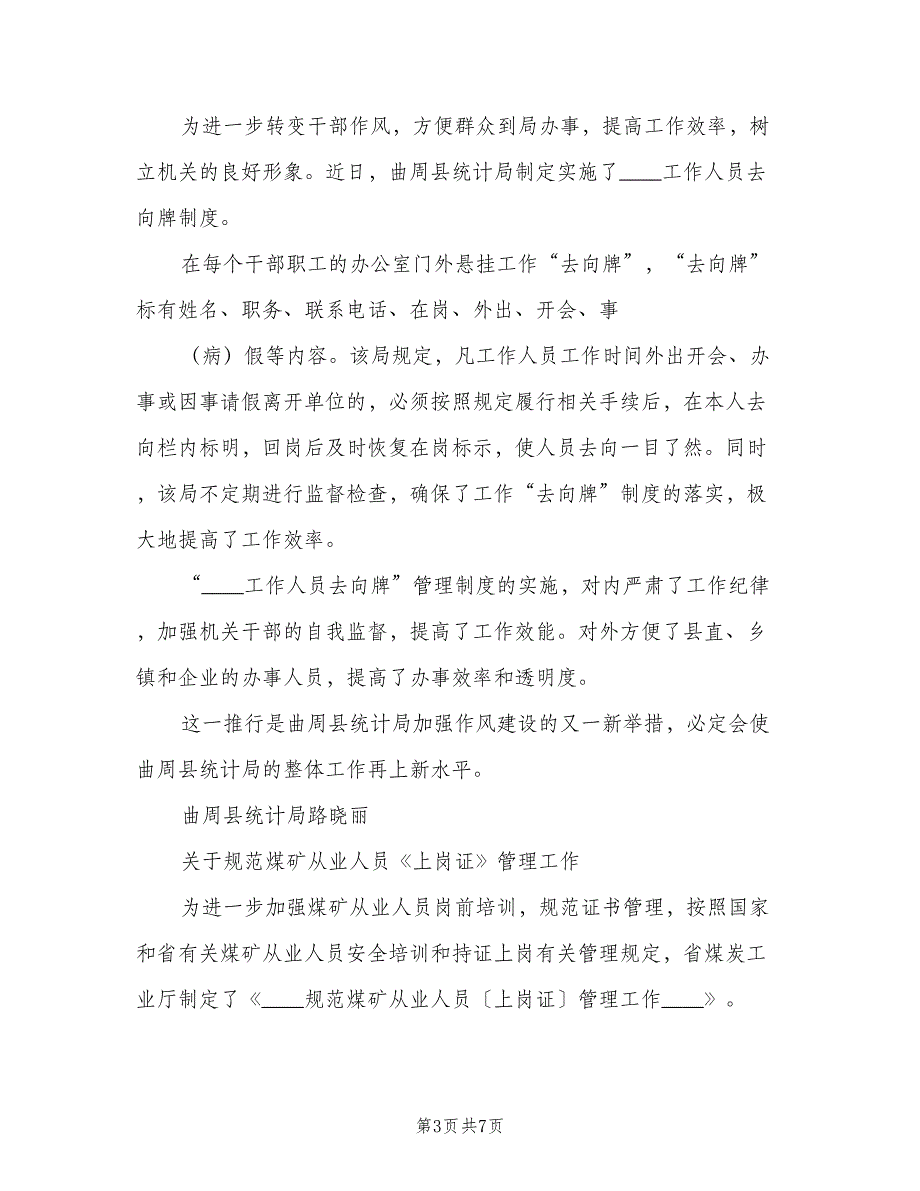 为进一步转变干部作风，方便群众到局办事，提高工作效率，树
立机关的良好形象。近日，曲周县统计局制定实施了____工作人员去
向牌制度。
在每个干部职工的办公室门外悬挂工作“去向牌”，“去向牌”
标有姓名、职务、联系电话、在岗、外出、开会、事
（病）假等内容。该局规定，凡工作人员工作时间外出开会、办
事或因事请假离开单位的，必须按照规定履行相关手续后，在本人去
向栏内标明，回岗后及时恢复在岗标示，使人员去向一目了然。同时
，该局不定期进行监督检查，确保了工作“去向牌”制度的落实，极
大地提高了工作效率。
“____工作人员去向牌”管理制度的实施，对内严肃了工作纪律
，加强机关干部的自我监督，提高了工作效能。对外方便了县直、乡
镇和企业的办事人员，提高了办事效率和透明度。
这一推行是曲周县统计局加强作风建设的又一新举措，必定会使
曲周县统计局的整体工作再上新水平。
曲周县统计局路晓丽
关于规范煤矿从业人员《上岗证》管理工作
为进一步加强煤矿从业人员岗前培训，规范证书管理，按照国家
和省有关煤矿从业人员安全培训和持证上岗有关管理规定，省煤炭工
业厅制定了《____规范煤矿从业人员〔上岗证〕管理工作____》。
第3页共7页